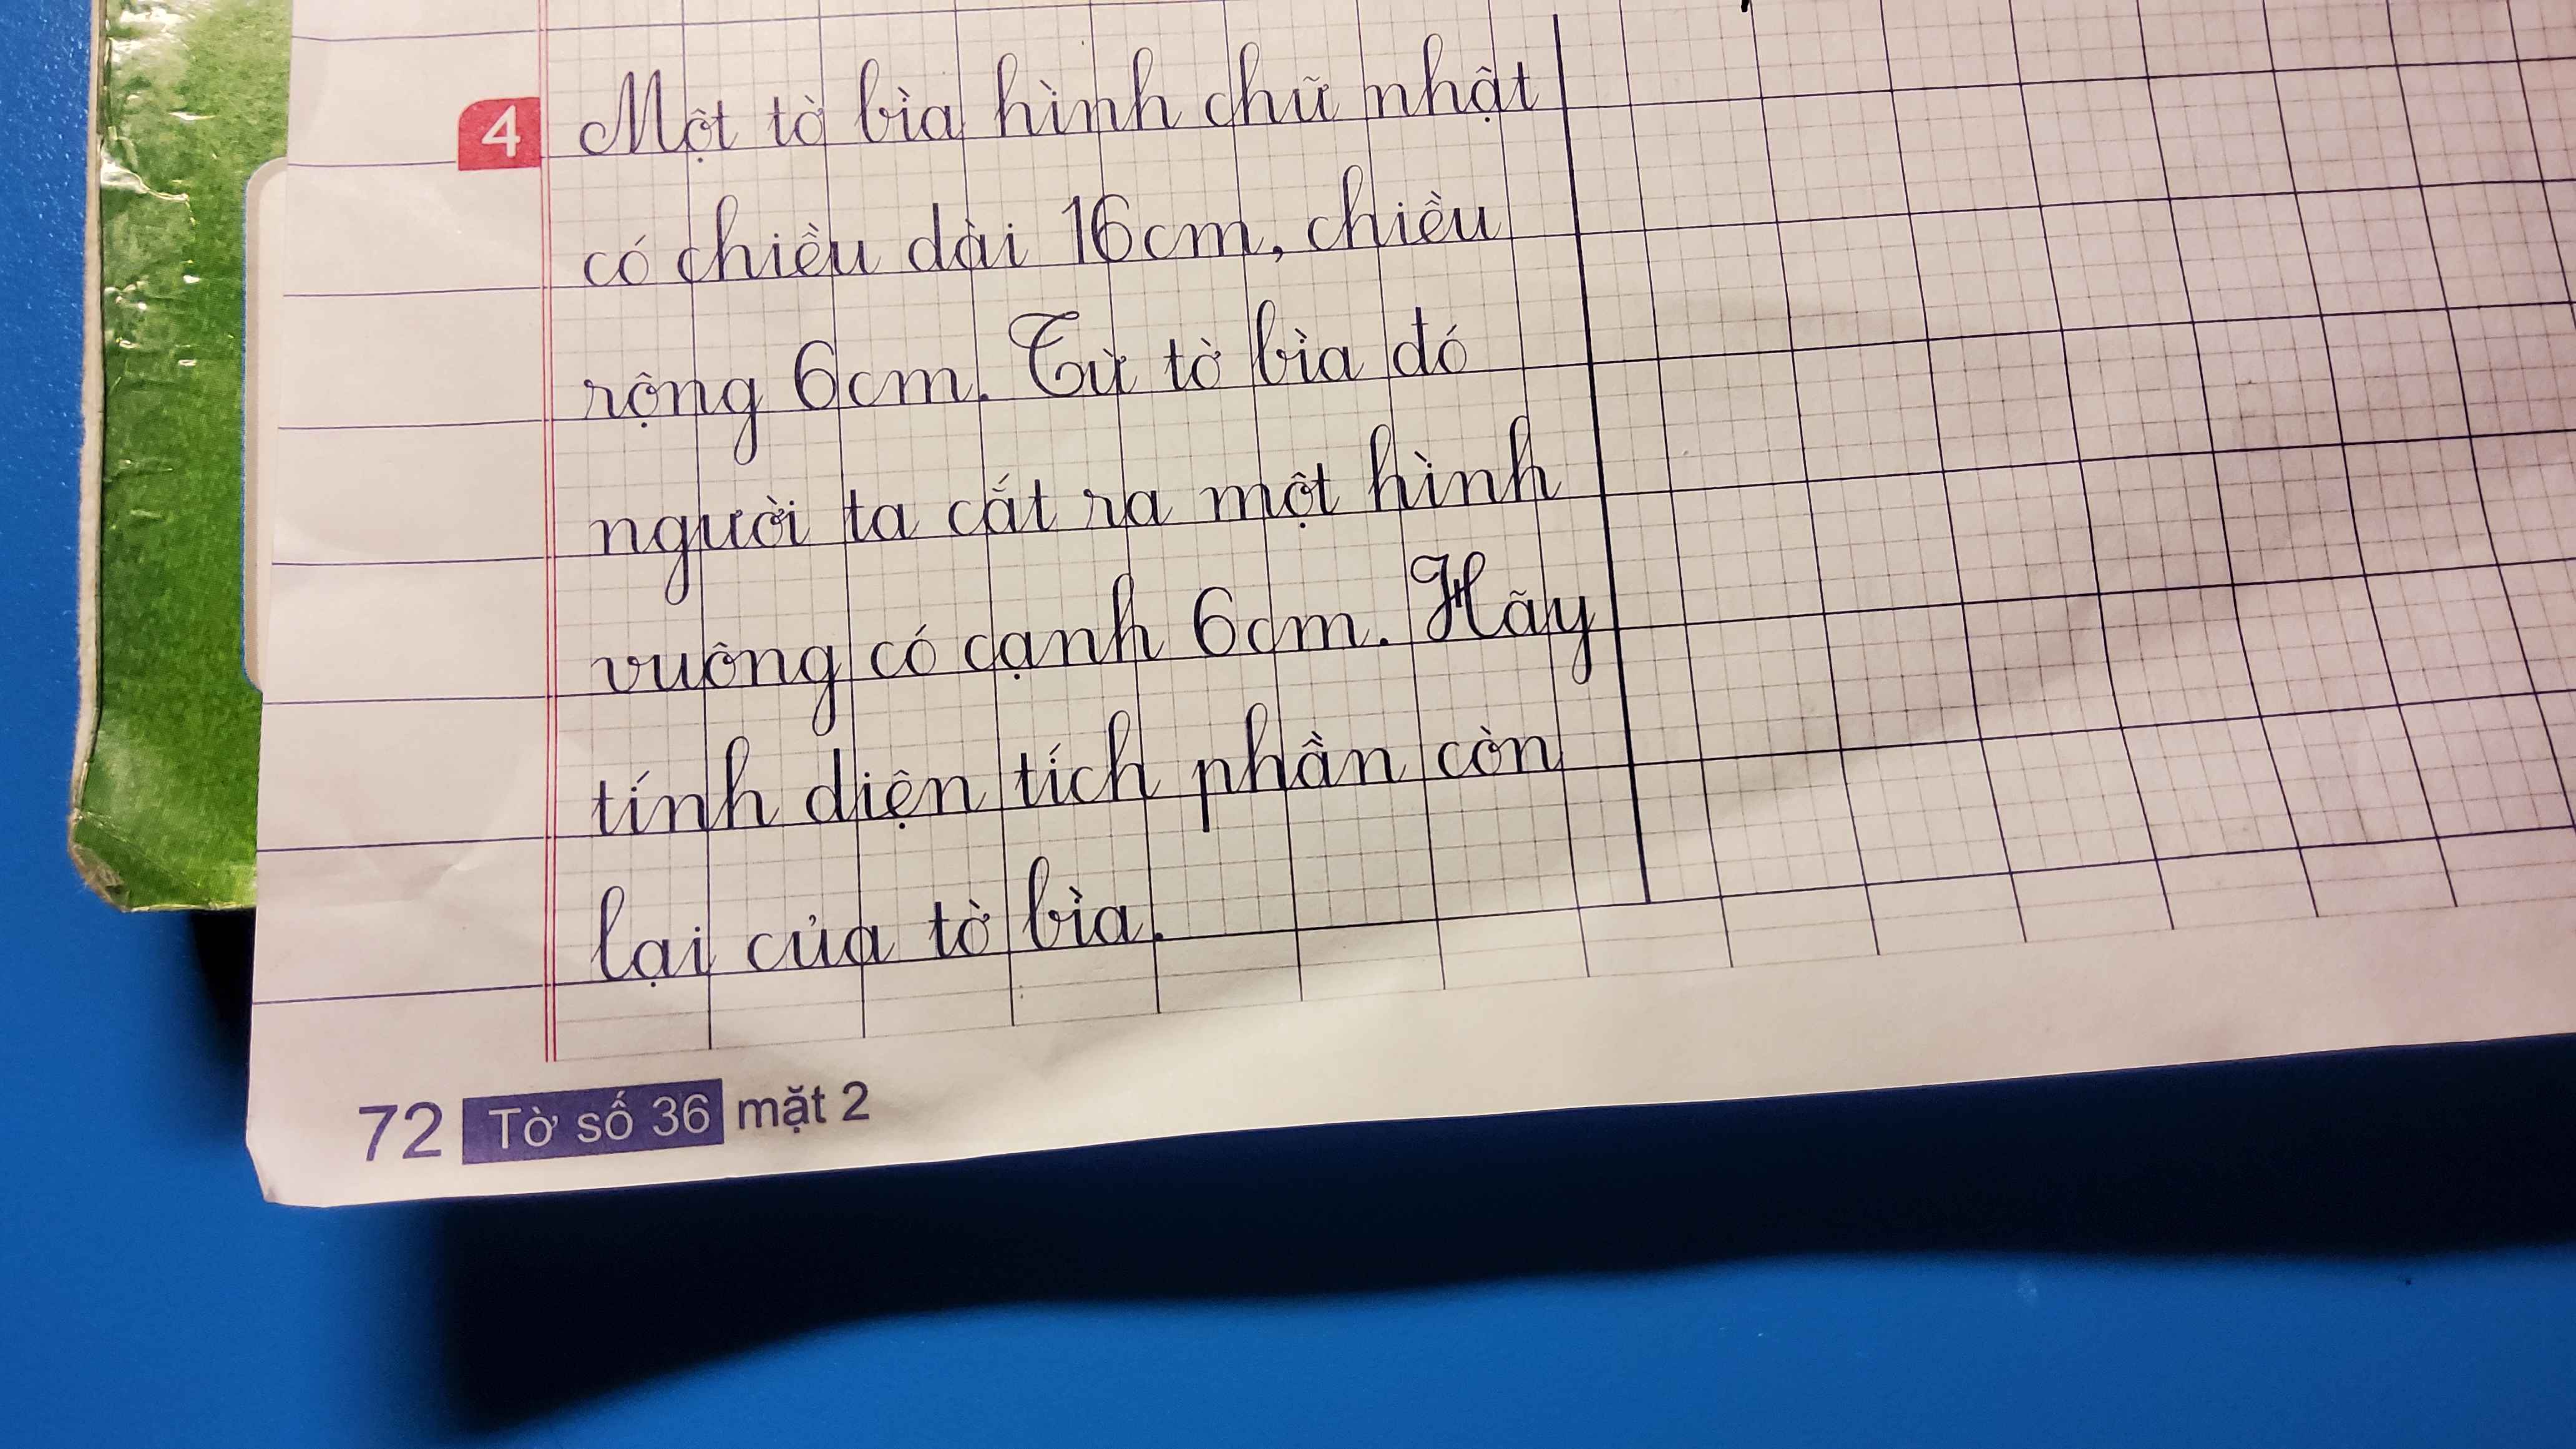 4 Một tờ bìa hình chữ nhật
có chiều dài 16cm, chiều
rộng 6cm. Từ tờ bìa đó
người ta cắt ra một hình
vuông có cạnh 6cm. Hãy
tính diện tích phần còn
lại của tờ bìa.
72 Tờ số 36 mặt 2